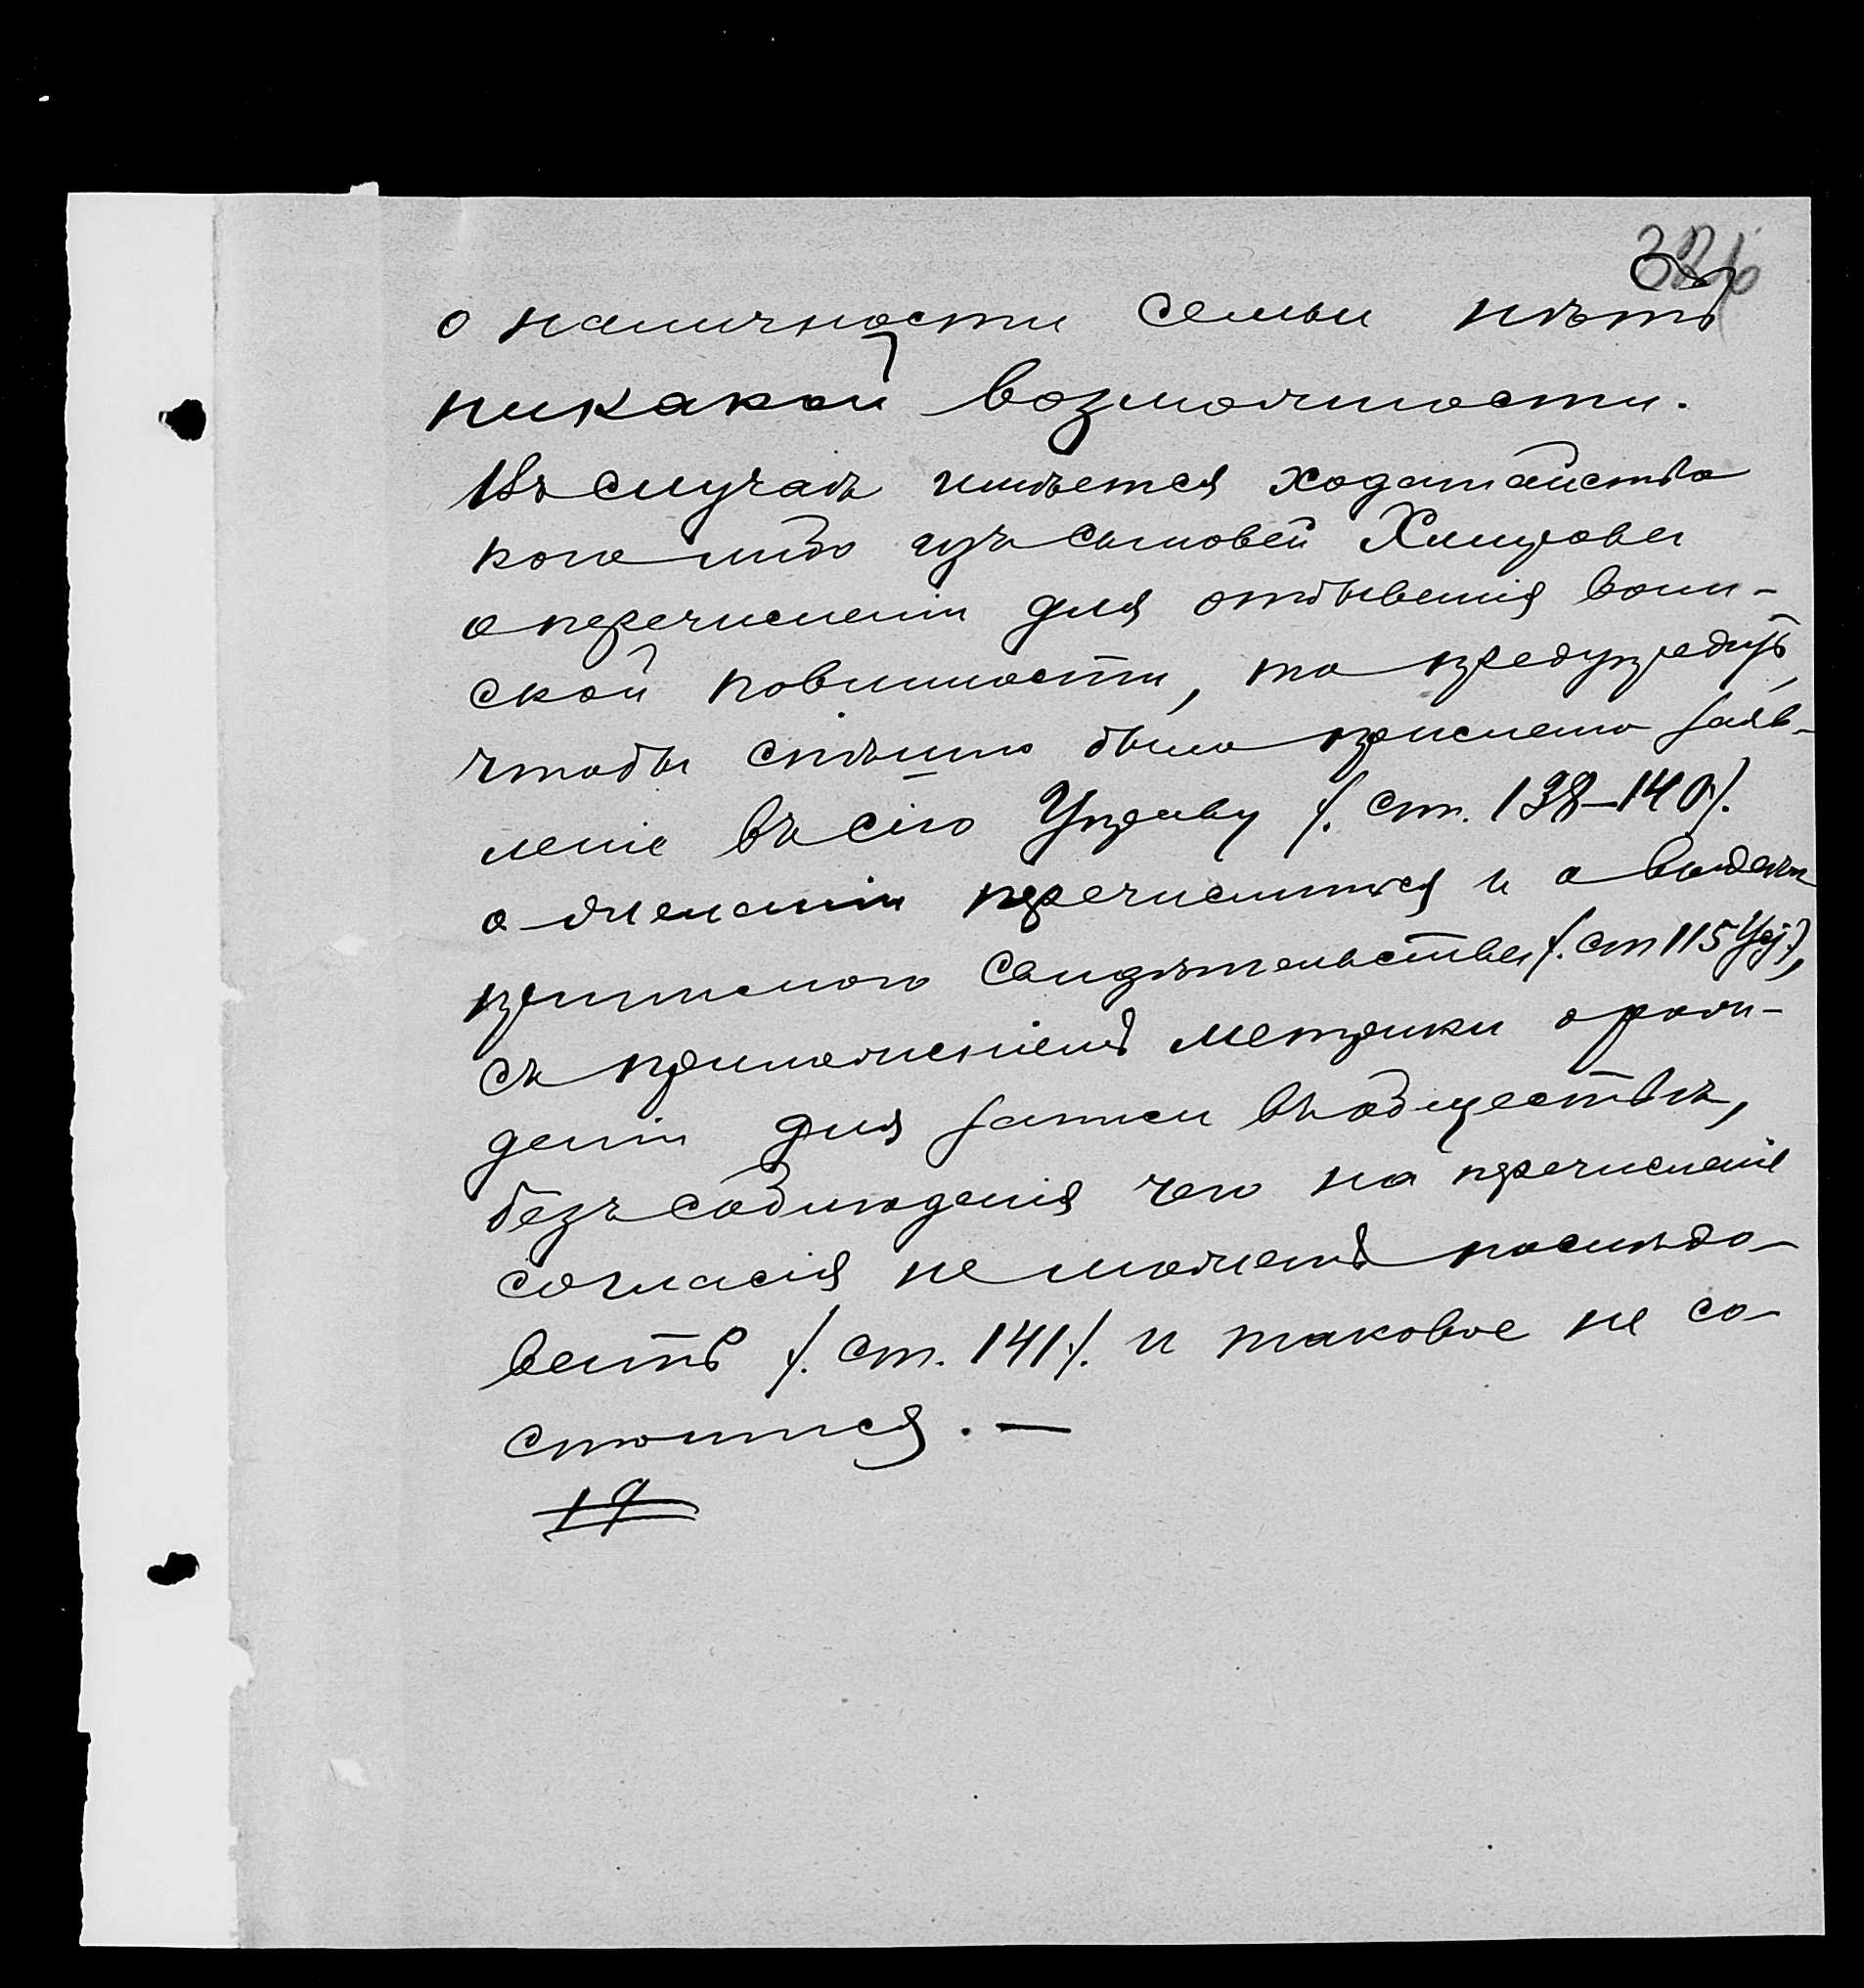 о наличности семьи нѣтъ
никакой возможности.
Въ случаѣ имѣется ходатайство
кого либо изъ сыновей
о перечисленіи для отбыванія воин-
ской повинности, то предупредить,
чтобы спѣшно было прислано заяв-
леніе въ сію Управу /. ст. 138–140/.
о желаніи перечислиться и о выдачи
приписного свидѣтельства /. ст 115 Уст/.,
съ приложеніемъ метрики о рож-
деніи для записи въ обществѣ,
безъ соблюденія чего на перечисленіе
согласія не можетъ послѣдо-
вать /. ст. 141/. и таковое не со-
стоится. —
19